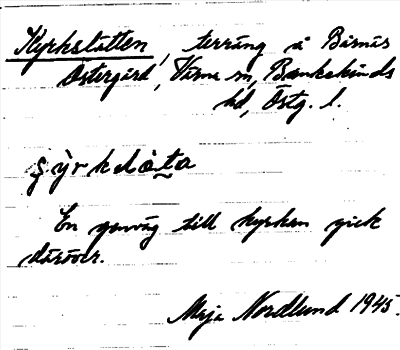 Kyrkstätten, terräng å Bärnäs
Östergård, Värna sn, Bankekinds
hd, Östg. l.
En genväg till kyrkan gick
däröver.
Maja Nordlund 1945.